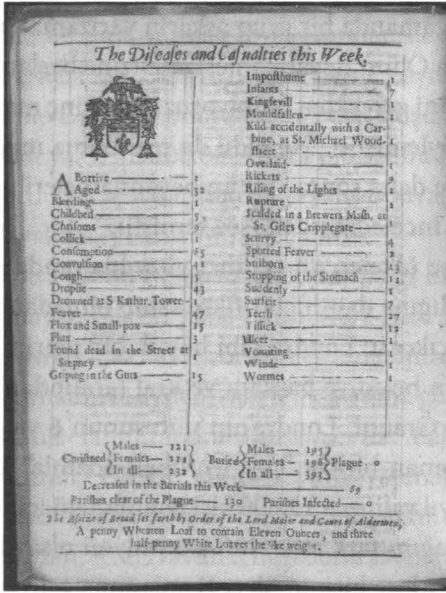 The Diseases and Casualties this Week.
Abortive 2
Aged 32
Bleeding 1
Childbed 5
Chrisoms 9
Collick 1
Consumption 65
Convulsion 41
Cough 3
Dropsie 43
Drowned at S Kathar. Tower 1
Feaver 47
Flox and Small-pox 15
Flux 3
Found dead in the Street at
Stepney 1
Griping in the Guts 15
Imposthume 1
Infants 7
Kingsevill 1
Mouldfallen 1
Kild accidentally with a Car-
bine, at St. Michael Wood-
street 1
Overlaid 1
Rickets
Rising of the Lights 2
Rupture
Scalded in a Brewers Mash, at
St. Giles Cripplegate 1
Scurvy 4
Spotted Feaver 2
Stilborn 13
Stopping of the Stomach 11
Suddenly 1
Surfeit 7
Teeth 27
Tissick 12
Ulcer 1
Vomiting 1
Winde 1
Wormes 1
Christned Males 121 Females 111 In all 232
Buried Males 195 Females 198 In all 393 Plague 0
Decreased in the Burials this Week 69
Parishes clear of the Plague 130 Parishes Infected 0
The Assize of Bread set forth by Order of the Lord Maior and Court of Aldermen,
A penny Wheaten Loaf to contain Eleven Ounces, and three
half-penny White Loaves the like weight.